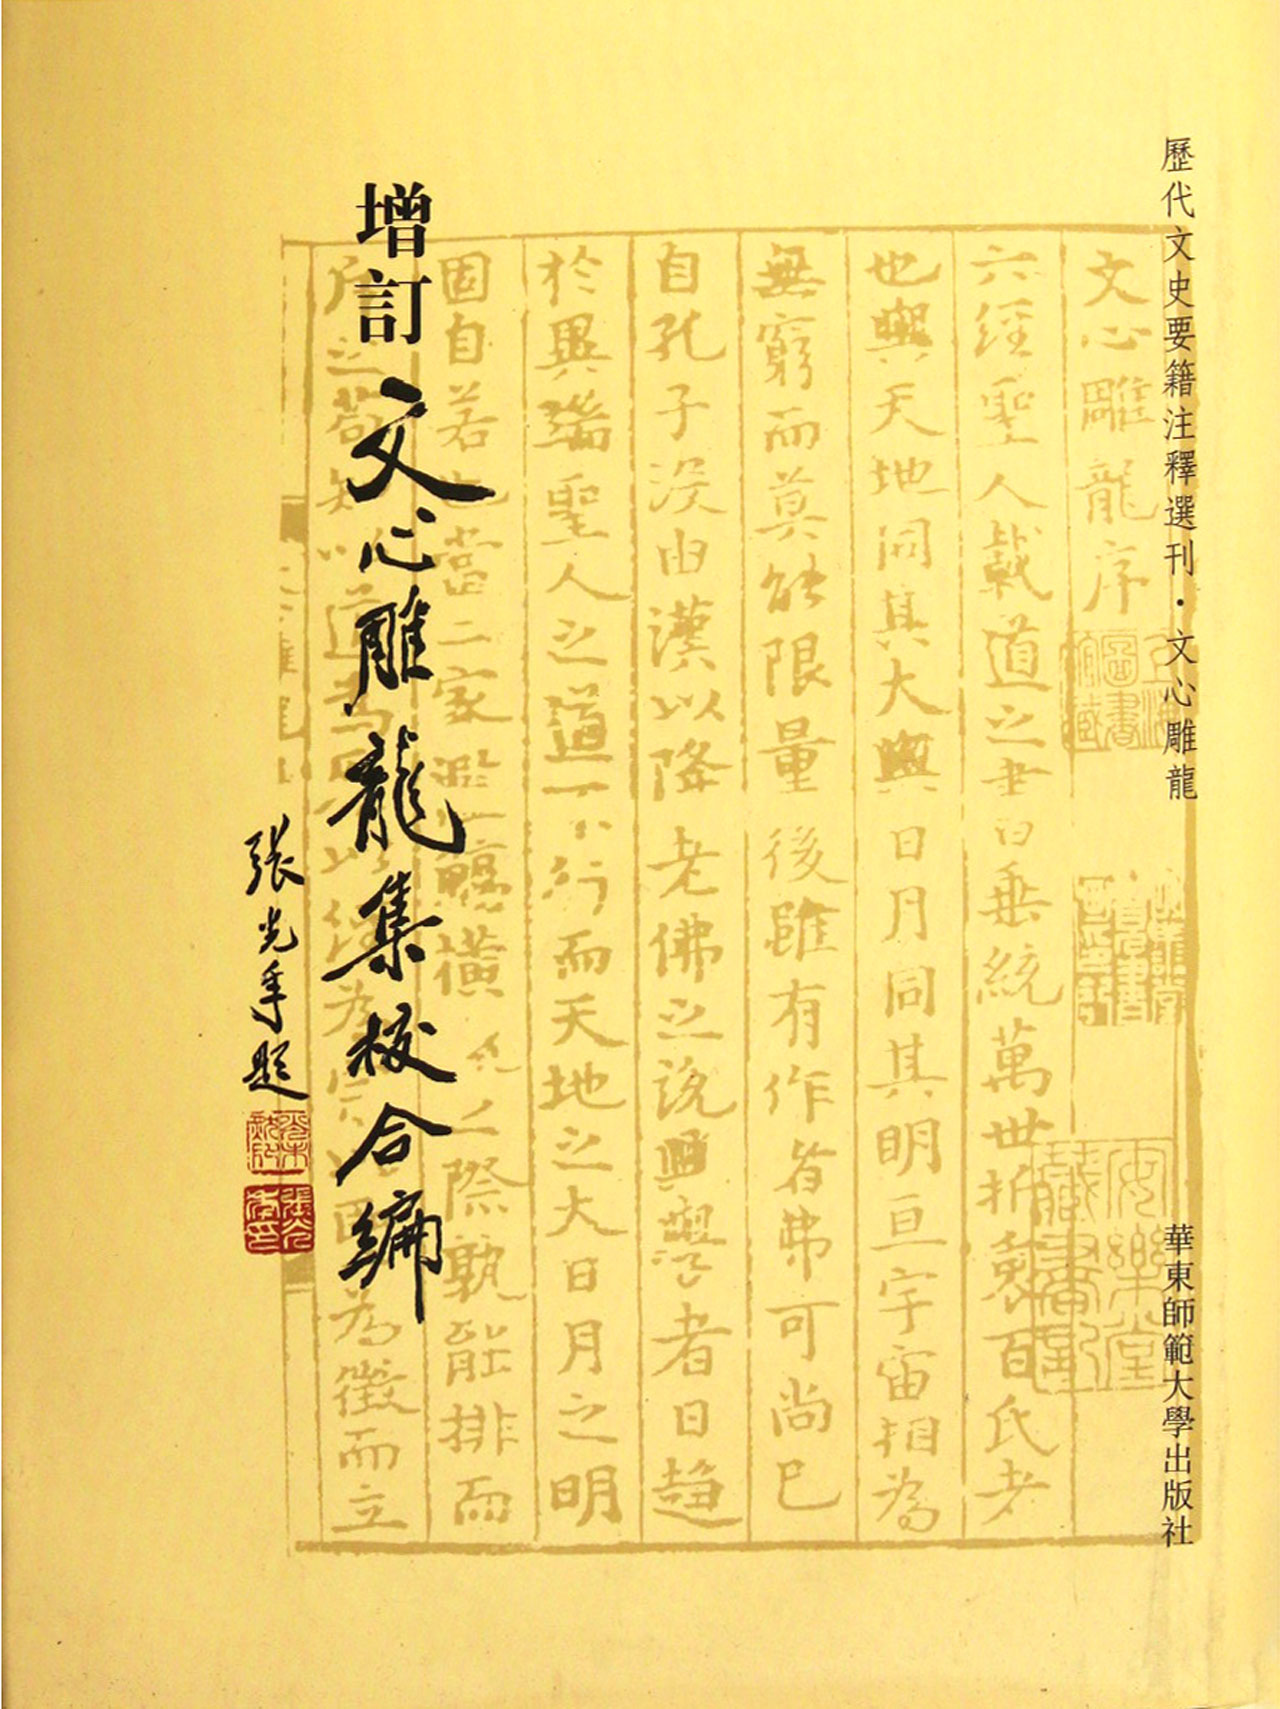 歷代文史要籍注釋選刊·文心雕龍
華東師範大學出版社
增訂文心雕龍集校合編
張光年題
文心雕龍序
六經聖人載道之書曰垂統萬世折衷百氏者
也與天地同其大與日月同其明亘宇宙相為
無窮而莫能限量後雖有作者弗可尚已
自孔子沒由漢以降老佛之說興學者日趨
於異端聖人之道不行而天地之大日月之明
固自若也當二家濫觴橫流之際孰能排而